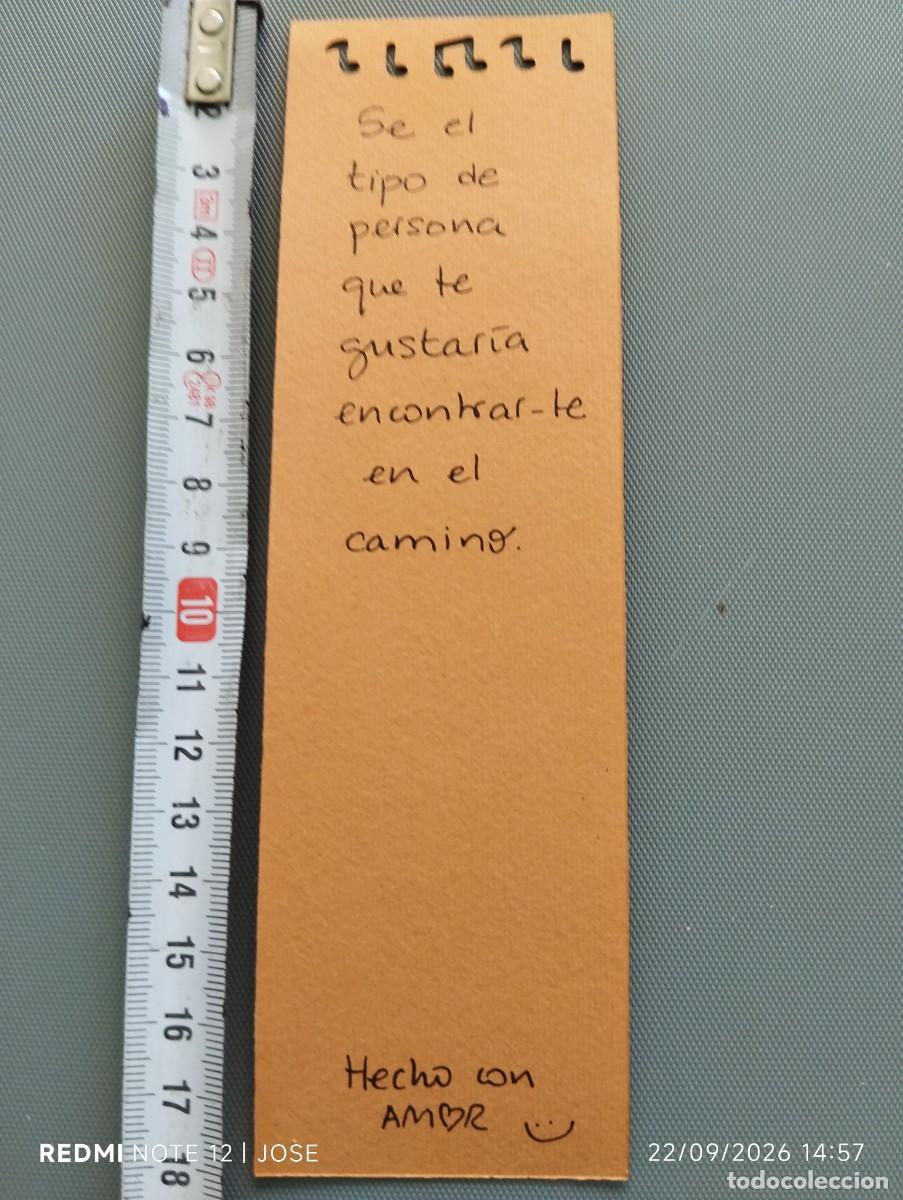 Se el
tipo de
persona
que te
gustaría
encontrar-te
en el
camino.
Hecho con
AMOR
2
3
4
5
6
7
8
9
10
11
12
13
14
15
16
17
18
REDMI NOTE 12 | JOSE
22/09/2026 14:57
todocoleccion